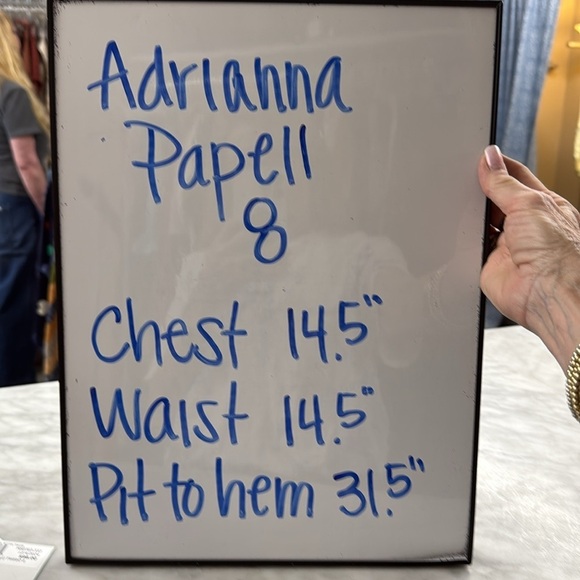 Adrianna
Papell
8
Chest 14.5"
Waist 14.5"
Pit to hem 31.5"